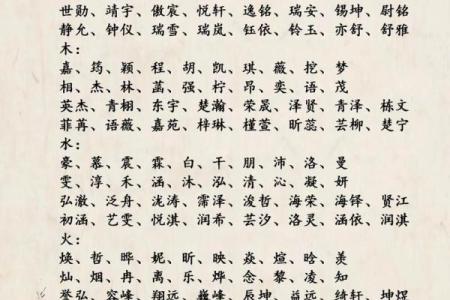 世勋、靖宇、傲宸、悦轩、逸铭、瑞安、锡坤、尉铭
静允、钟仪、瑞雪、瑞岚、钰依、铃玉、亦舒、舒雅
木：
嘉、筠、颖、程、胡、凯、琪、薇、挖、梦
相、杰、林、菡、强、柠、昂、奕、语、茂
英杰、青栩、东宇、楚瀚、荣晟、泽贤、青泽、栋文
菲苒、语薇、嘉苑、梓琳、槿萱、昕蕊、芸柳、楚宁
水：
豪、慕、震、霖、白、干、朋、沛、洛、曼
雯、淳、禾、涵、沐、泓、清、沁、凝、妍
弘澈、泛舟、洸涛、霈泽、浚哲、海荣、海铎、贤江
初涵、艺雯、悦淇、润希、芸汐、洛灵、涵依、润淇
火：
焕、哲、晔、妮、昕、映、焱、煊、晗、羡
灿、烟、冉、离、乐、烨、念、黎、凌、知
誉弘、容峰、翔远、巍峰、辰坤、益远、绮轩、坤煜